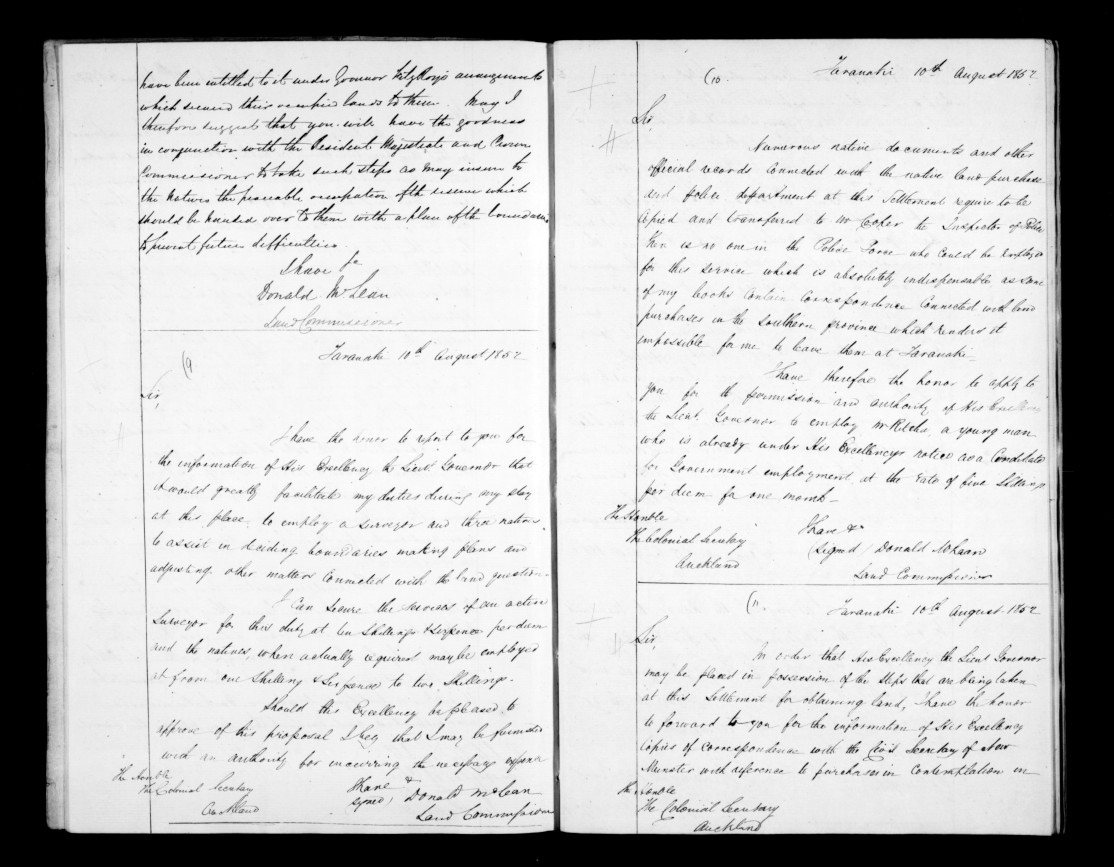 have been entitled to it under Governor FitzRoy's arrangements
which secured their occupied lands to them. May I
therefore suggest that you will have the goodness
in conjunction with the Resident Magistrate and Crown
Commissioner to take such steps as may insure to
the natives the peaceable occupation of the reserve which
should be handed over to them with a plan of the boundaries
to prevent future difficulties.
I have &c
Donald McLean
Land Commissioner
(9
Taranaki 10th August 1852
Sir,
I have the honor to report to you for
the information of His Excellency the Lieut Governor that
it would greatly facilitate my duties during my stay
at this place, to employ a surveyor and three natives
to assist in deciding boundaries making plans and
adjusting other matters connected with the land question.
I can secure the services of an active
surveyor for this duty at ten shillings & sixpence per diem
and the natives when actually required may be employed
at from one shilling & sixpence to two shillings.
Should His Excellency be pleased to
approve of this proposal I beg that I may be furnished
with an authority for incurring the necessary expense
I have &
signed, Donald McLean
Land Commissioner
The Honble
The Colonial Secretary
Auckland
(10
Taranaki 10th August 1852
Sir,
Numerous native documents and other
official records connected with the native land purchase
and police department at this Settlement require to be
copied and transferred to Mr Cooper the Inspector of Police
there is no one in the Police Force who could be employed
for this service which is absolutely indispensable as some
of my books contain correspondence connected with land
purchases in the Southern province which renders it
impossible for me to leave them at Taranaki—
I have therefore the honor to apply to
you for the permission and authority of His Excellency
the Lieut. Governor to employ Mr a young man
who is already under His Excellencys notice as a Candidate
for Government employment at the rate of five shillings
per diem for one month—
I have &c
(Signed) Donald McLean
Land Commissioner
The Honble
The Colonial Secretary
Auckland
(11.
Taranaki 10th August 1852
Sir,
In order that His Excellency the Lieut Governor
may be placed in possession of the steps that are being taken
at this Settlement for obtaining land, I have the honor
to forward to you for the information of His Excellency
copies of correspondence with the Civil Secretary of New
Munster with reference to purchases in contemplation in
The Honble
The Colonial Secretary
Auckland